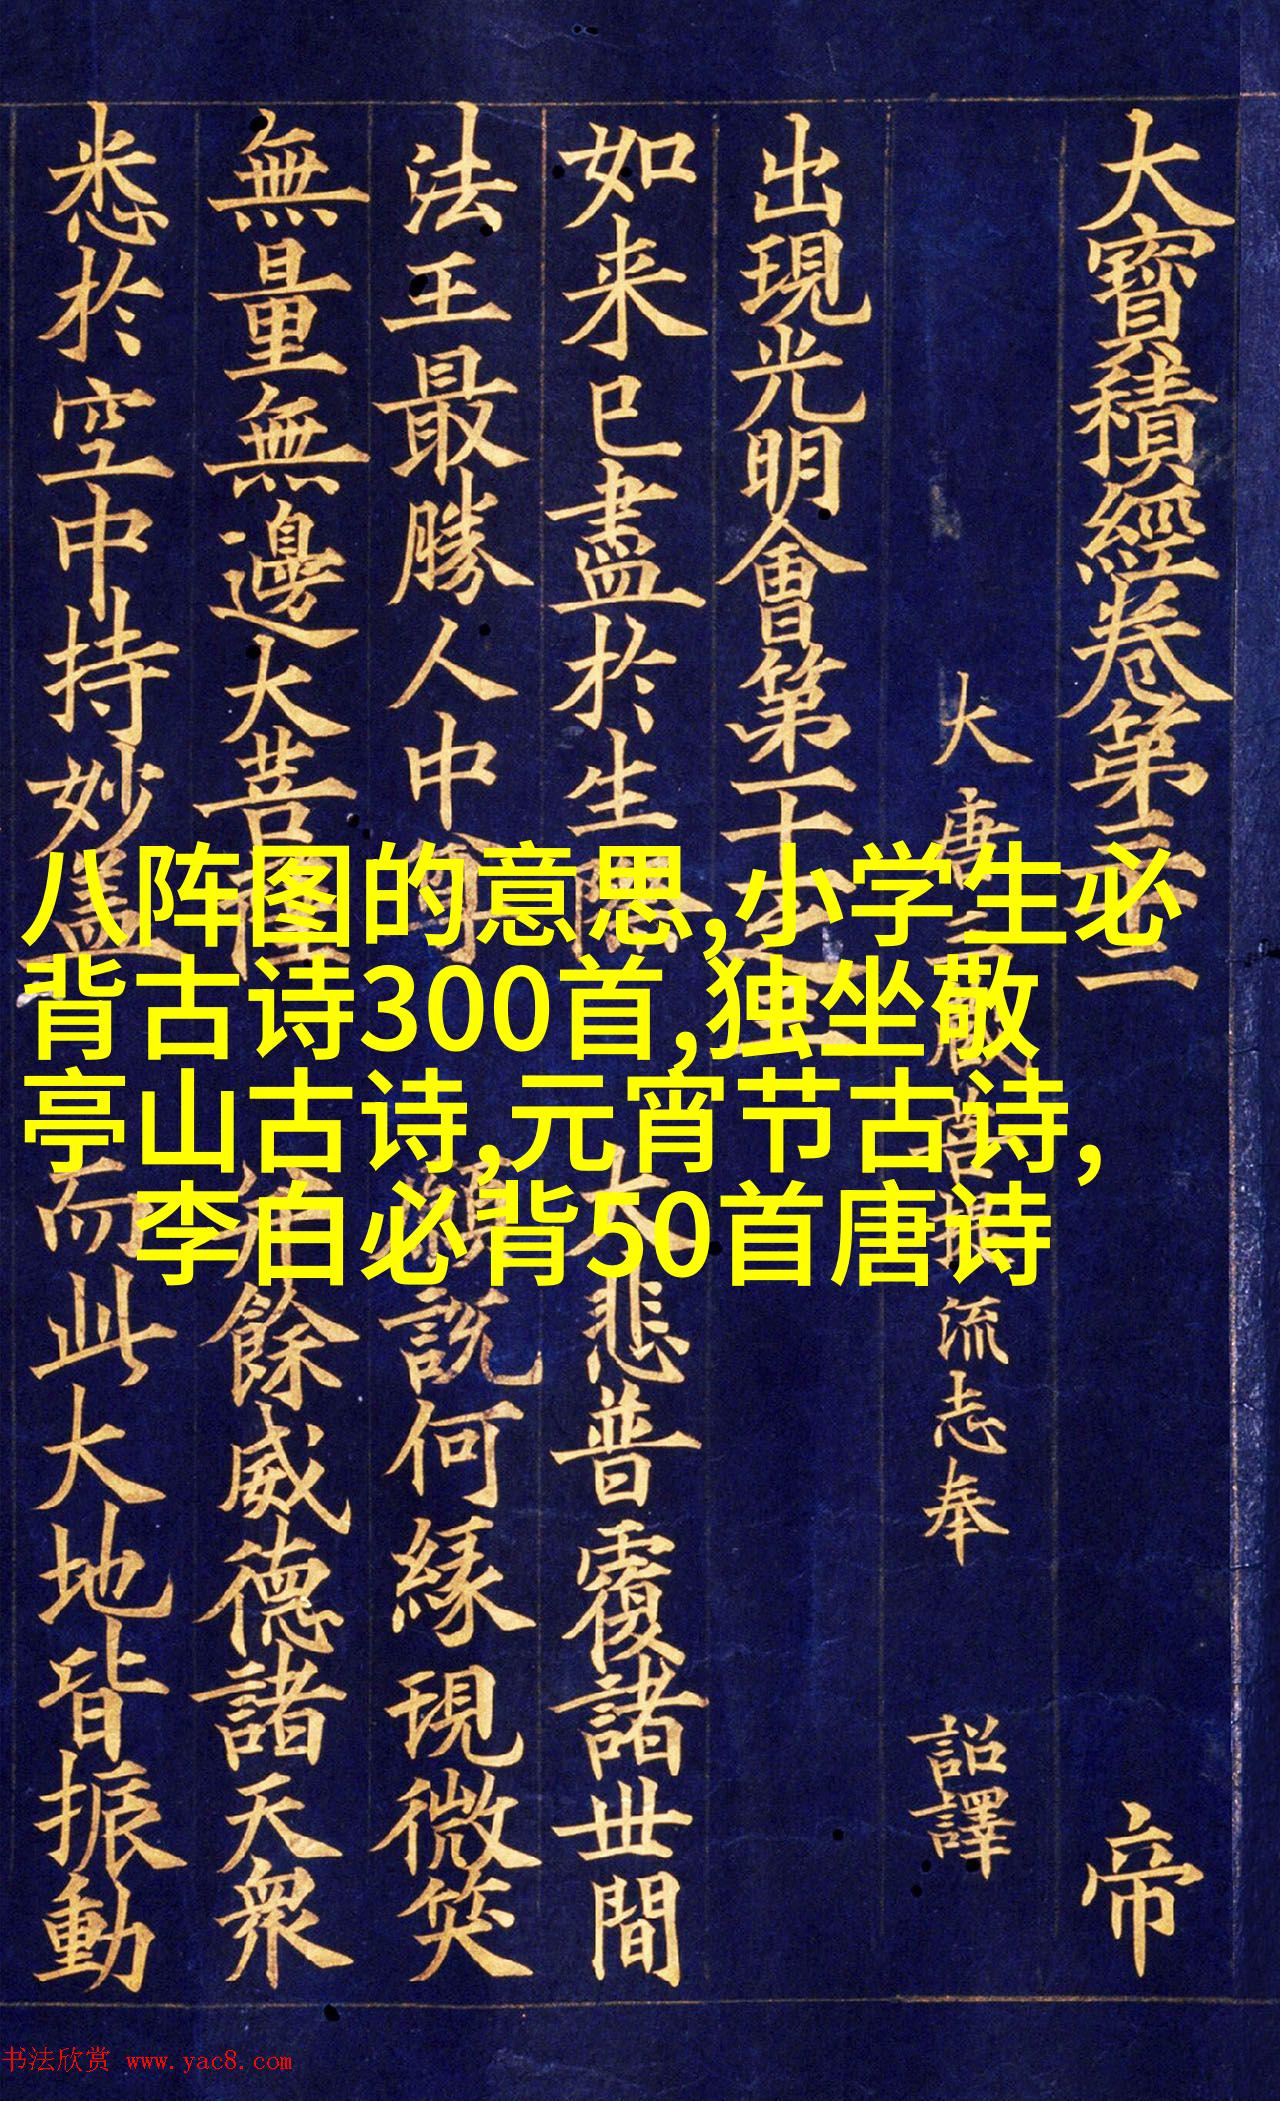 大寶積經卷第三十二 帝
大唐三藏菩提流志奉 詔譯
出現光明會第十一之三
如来已盡於生際 大悲普覆諸世間
法王最勝人中尊 願說何緣現微笑
無量無邊大菩薩 餘威德諸天衆
悉於空中持妙蓋 而此大地皆振動
八阵图的意思,小学生必
背古诗300首,独坐敬
亭山古诗,元宵节古诗,
李白必背50首唐诗
书法欣赏 www.yac8.com